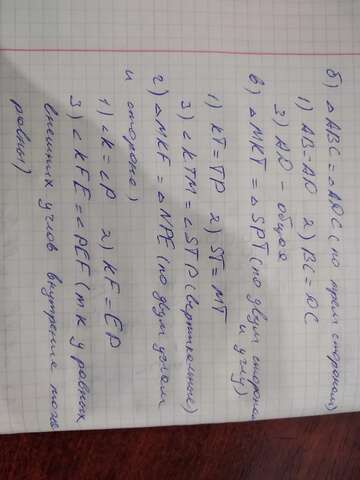 б) △ABC = △ADC (по трем сторонам)
1) AB = AD 2) BC = DC
3) AD - общая
в) △MKT = △SPT (по двум сторонам
и углу)
1) KT = TP 2) ST = MT
3) ∠KTM = ∠STP (вертикальные)
г) △MKF = △NPE (по двум углам
и стороне)
1) ∠K = ∠P 2) KF = EP
3) ∠KFE = ∠PEF (т к у равных
внешних углов внутрение тоже
равны)